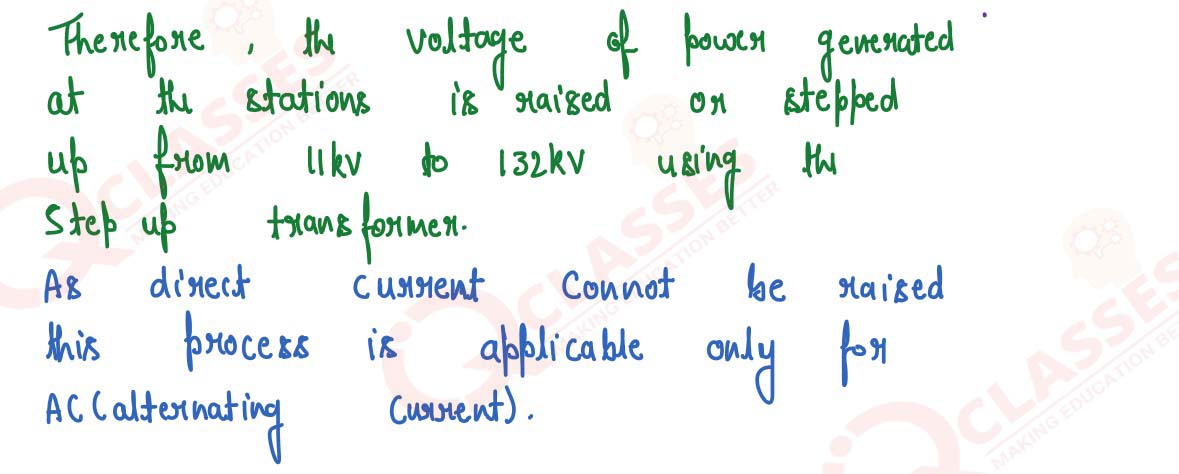 Therefore, the voltage of power generated
at the stations is raised or stepped
up from 11kv to 132kV using the
Step up transformer.
As direct current Connot be raised
this process is applicable only for
AC(alternating Current).
CLASSES
MAKING EDUCATION BETTER
CLASSES
MAKING EDUCATION BETTER
CLASSES
MAKING EDUCATION BE